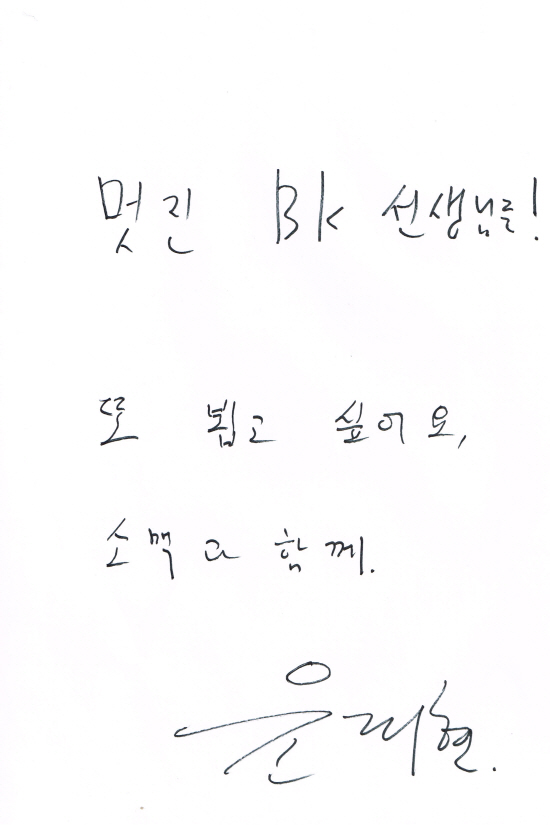 멋진 Bk 선생님들!
또 뵙고 싶어요,
소맥과 함께.